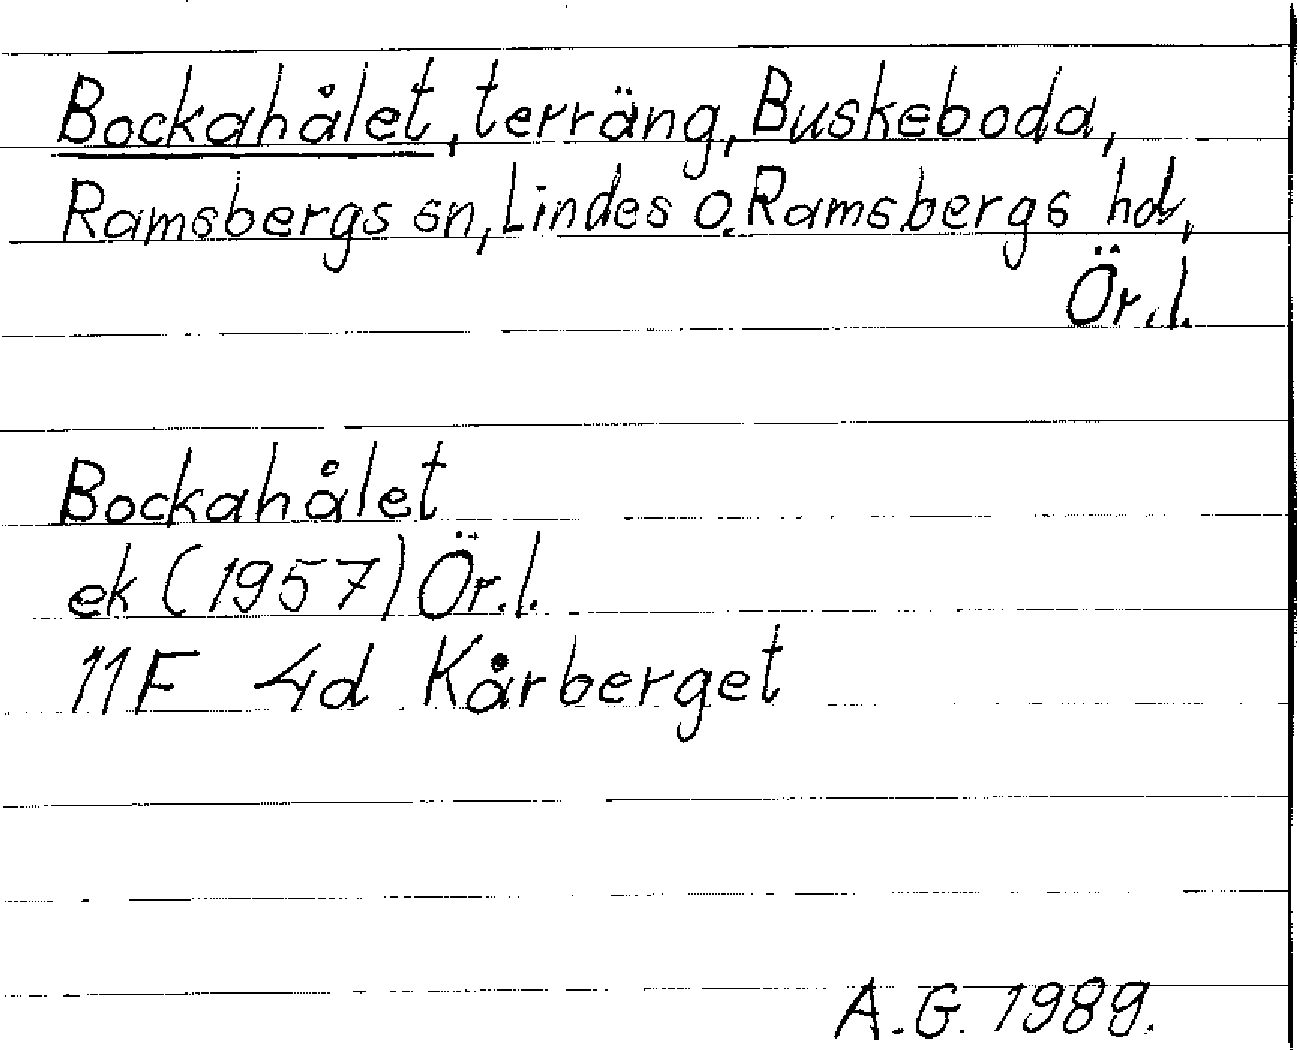 Bockahålet, terräng, Buskeboda,
Ramsbergs sn, Lindes o. Ramsbergs hd,
Ör. l.
Bockahålet
ek (1957) Ör. l.
11F 4d Kårberget
A.G. 1989.